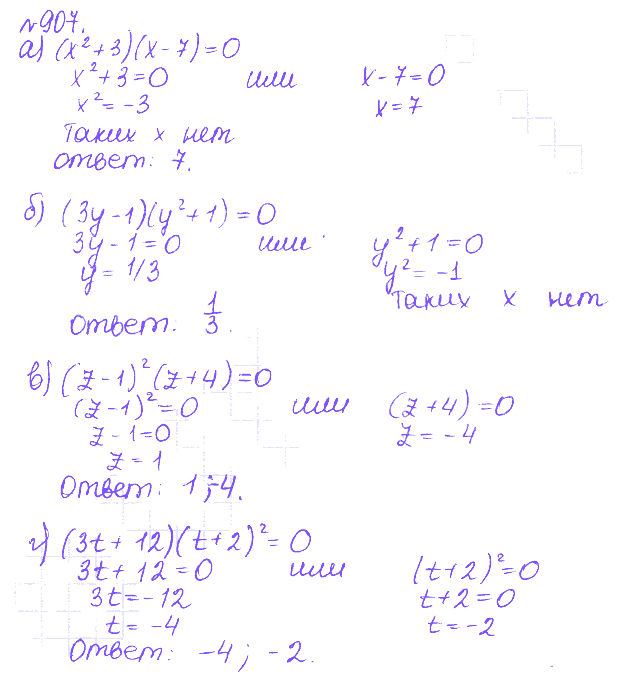 №907.
а) (x² + 3)(x - 7) = 0
x² + 3 = 0 или x - 7 = 0
x² = -3 x = 7
Таких x нет
Ответ: 7.
б) (3y - 1)(y² + 1) = 0
3y - 1 = 0 или y² + 1 = 0
y = 1/3 y² = -1
Таких x нет
Ответ: 1/3.
в) (z - 1)² (z + 4) = 0
(z - 1)² = 0 или (z + 4) = 0
z - 1 = 0 z = -4
z = 1
Ответ: 1; -4.
г) (3t + 12)(t + 2)² = 0
3t + 12 = 0 или (t + 2)² = 0
3t = -12 t + 2 = 0
t = -4 t = -2
Ответ: -4; -2.